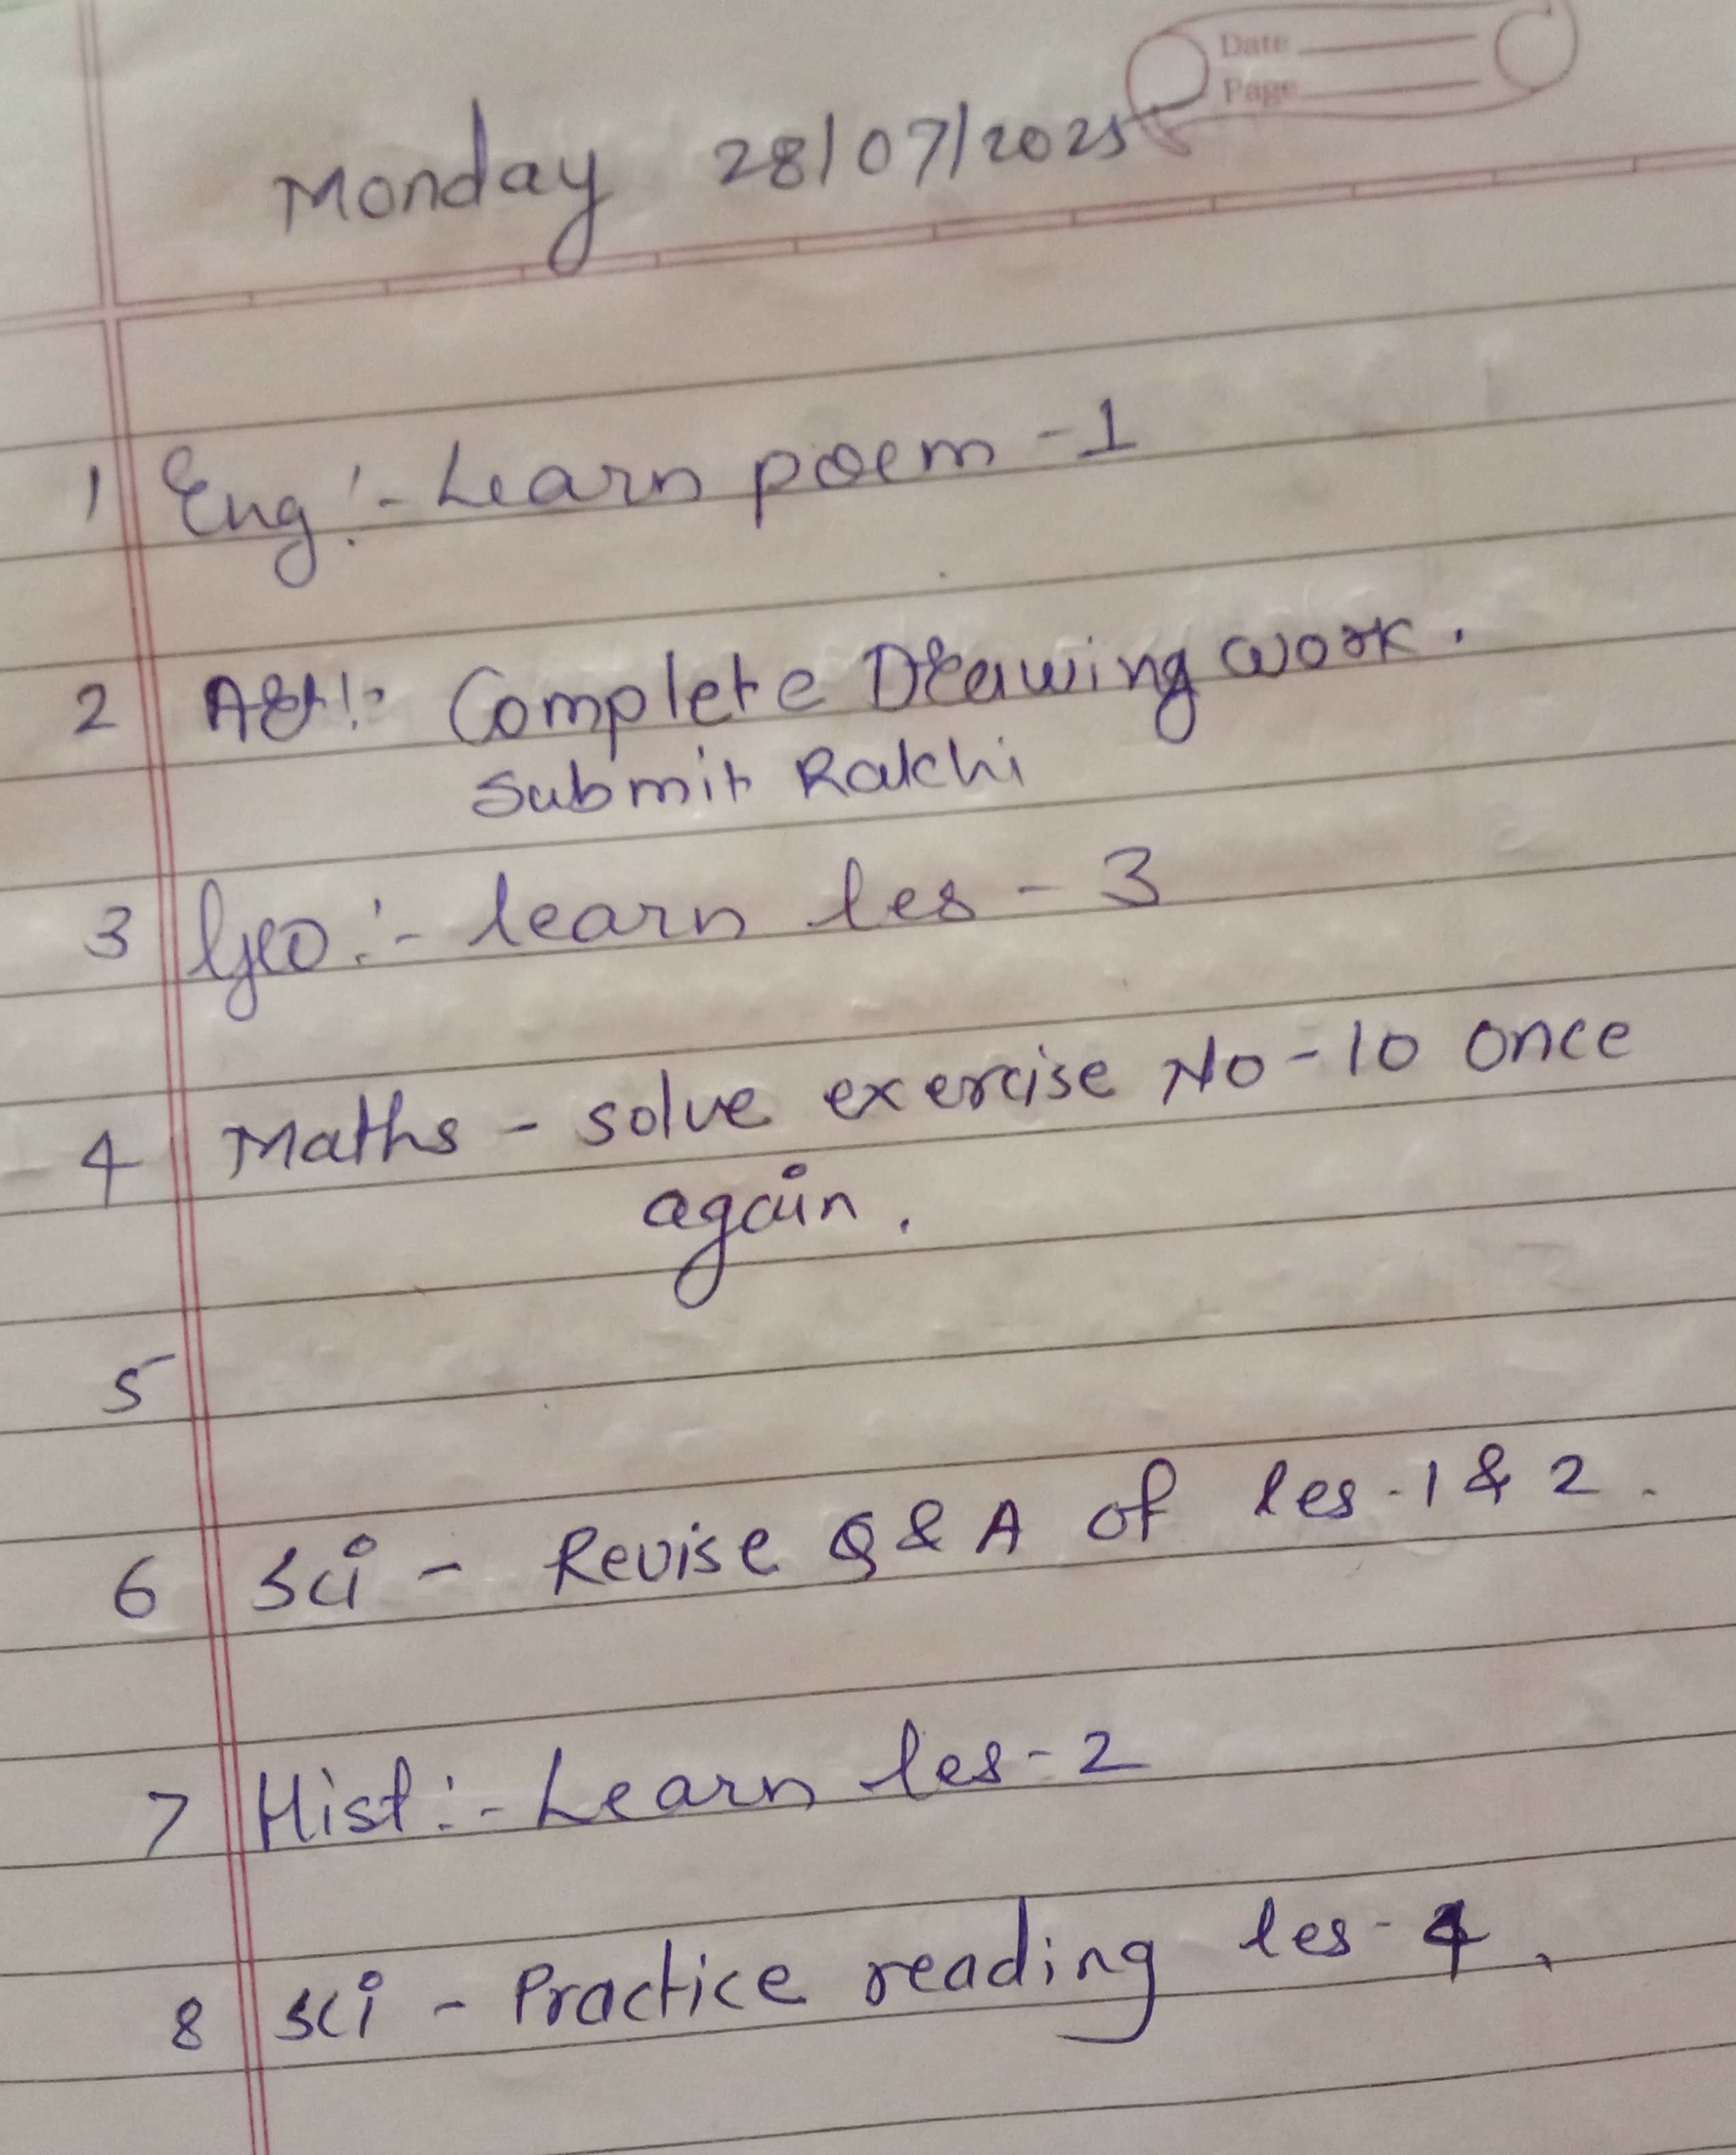 Date
Page
Monday 28/07/2025
1 Eng :- Learn poem - 1
2 Art :- Complete Drawing work.
Submit Rakhi
3 Geo :- learn les - 3
4 Maths - solve exercise No - 10 once
again.
5
6 Sci - Revise Q & A of les - 1 & 2.
7 Hist :- Learn les - 2
8 Sci - Practice reading les - 4.